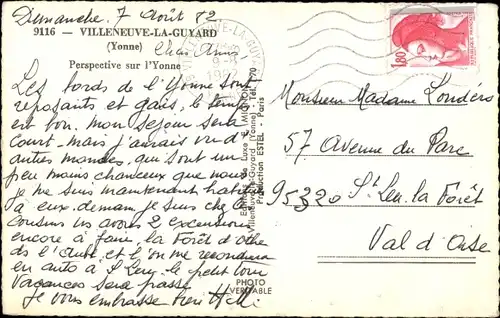 Dimanche 7 Août 82
9116 — VILLENEUVE-LA-GUYARD
(Yonne) Chers Amis
Perspective sur l'Yonne
Les bords de l'Yonne sont
reposants et gais, le temps
est bon. Mon séjour sera
court. Mais j'aurais vu d'
autres mondes, qui sont un
peu moins chanceux que nous
je me suis maintenant habitué
à eux. demain je suis chez
cousins
encore à faire la Forêt d'Othe
de l'Aube, et l'on me reconduira
en auto à St Leu, le petit tour
vacances sera passé
je vous embrasse bien
Editions de Luxe
Villeneuve-la-Guyard (Yonne) - Tél. 170
Production ESTEL - Paris
PHOTO
VERITABLE
1,80
Monsieur Madame Londérs
57 Avenue du Parc
95320 St Leu la Forêt
Val d'Oise